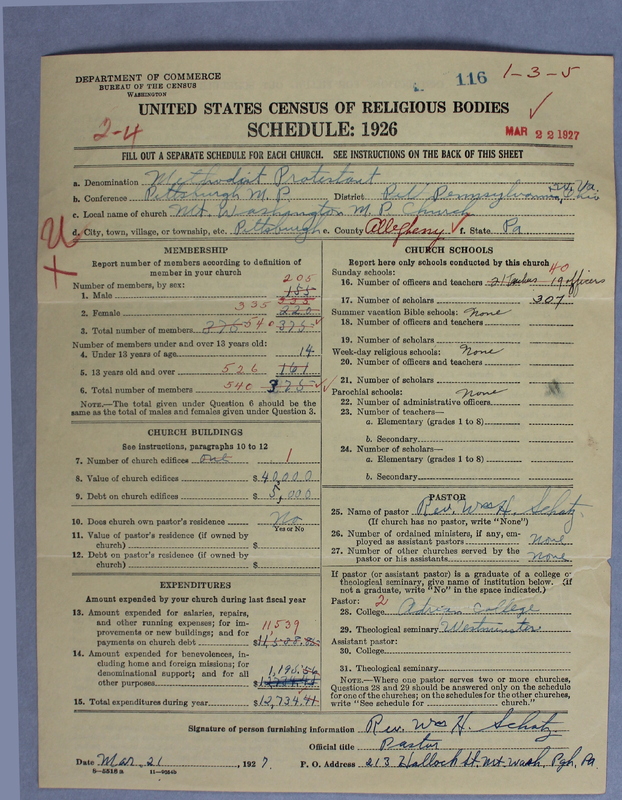 DEPARTMENT OF COMMERCE
BUREAU OF THE CENSUS
WASHINGTON
116
1-3-5
UNITED STATES CENSUS OF RELIGIOUS BODIES
SCHEDULE: 1926
2-4
MAR 22 1927
FILL OUT A SEPARATE SCHEDULE FOR EACH CHURCH. SEE INSTRUCTIONS ON THE BACK OF THIS SHEET
a. Denomination Methodist Protestant
b. Conference Pittsburgh M. P. District Pennsylvania, W. Va. Ohio
c. Local name of church Mt. Washington M. P. Church
d. City, town, village, or township, etc. Pittsburgh e. County Allegheny f. State Pa
MEMBERSHIP
Report number of members according to definition of
member in your church
Number of members, by sex:
1. Male 205 155
2. Female 335 220
3. Total number of members 375 540 375
Number of members under and over 13 years old:
4. Under 13 years of age 14
5. 13 years old and over 526 161
6. Total number of members 540 375
NOTE.—The total given under Question 6 should be
same as the total of males and females given under Question 3.
CHURCH BUILDINGS
See instructions, paragraphs 10 to 12
7. Number of church edifices one 1
8. Value of church edifices $40,000
9. Debt on church edifices $5,000
10. Does church own pastor's residence No
Yes or No
11. Value of pastor's residence (if owned by
church) $
12. Debt on pastor's residence (if owned by
church) $
EXPENDITURES
Amount expended by your church during last fiscal year
13. Amount expended for salaries, repairs,
and other running expenses; for im-
provements or new buildings; and for
payments on church debt 11539
14. Amount expended for benevolences, in-
cluding home and foreign missions; for
denominational support; and for all
other purposes 1,195.56
15. Total expenditures during year $12,734.41
CHURCH SCHOOLS
Report here only schools conducted by this church
Sunday schools: 40
16. Number of officers and teachers 21 Teachers 19 officers
17. Number of scholars 307
Summer vacation Bible schools: None
18. Number of officers and teachers
19. Number of scholars
Week-day religious schools: None
20. Number of officers and teachers
21. Number of scholars
Parochial schools: None
22. Number of administrative officers
23. Number of teachers—
a. Elementary (grades 1 to 8)
b. Secondary
24. Number of scholars—
a. Elementary (grades 1 to 8)
b. Secondary
PASTOR
25. Name of pastor Rev. Wm H. Schatz
(If church has no pastor, write "None")
26. Number of ordained ministers, if any, em-
ployed as assistant pastors None
27. Number of other churches served by the
pastor or his assistants None
If pastor (or assistant pastor) is a graduate of a college or
theological seminary, give name of institution below. (If
not a graduate, write "No" in the space indicated.)
Pastor: 2
28. College Adrian College
29. Theological seminary Westminster
Assistant pastor:
30. College
31. Theological seminary
NOTE.—Where one pastor serves two or more churches,
Questions 28 and 29 should be answered only on the schedule
for one of the churches; on the schedules for the other churches,
write "See schedule for church."
Signature of person furnishing information Rev. Wm H. Schatz
Official title Pastor
Date Mar. 21, 1927. P. O. Address 213 Hallock St. Mt. Wash, Pgh, Pa.
8-5518a